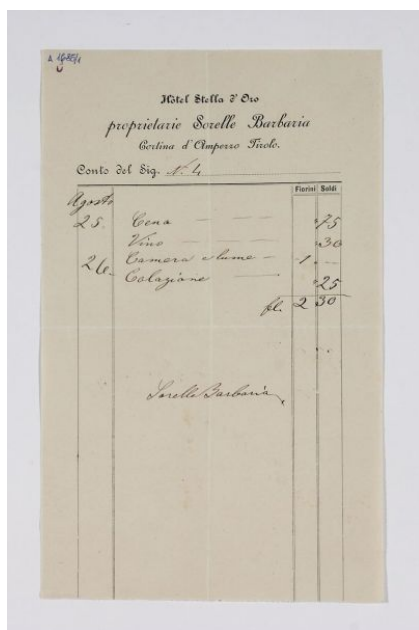 Hôtel Stella d'Oro
proprietarie Sorelle Barbaria
Cortina d'Ampezzo Tirolo.
Conto del Sig. N. 4
Fiorini Soldi
Agosto
25. Cena — — — "75
Vino — — — "30
26. Camera e lume — 1. —
Colazione — "25
fl. 2 30
Sorelle Barbaria